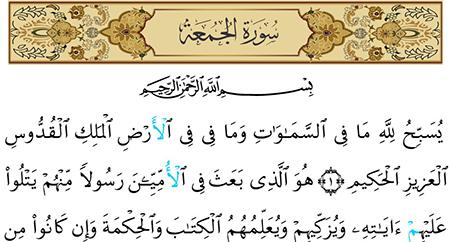 سُورَةُ الجُمُعَةِ
بِسْمِ اللَّهِ الرَّحْمَٰنِ الرَّحِيمِ
يُسَبِّحُ لِلَّهِ مَا فِى ٱلسَّمَٰوَٰتِ وَمَا فِى فِى ٱلْأَرْضِ ٱلْمَلِكِ ٱلْقُدُّوسِ
ٱلْعَزِيزِ ٱلْحَكِيمِ ﴿١﴾ هُوَ ٱلَّذِى بَعَثَ فِى ٱلْأُمِّيِّـۧنَ رَسُولاً مِّنْهُمْ يَتْلُوا۟
عَلَيْهِمْ ءَايَٰتِهِۦ وَيُزَكِّيهِمْ وَيُعَلِّمُهُمُ ٱلْكِتَٰبَ وَٱلْحِكْمَةَ وَإِن كَانُوا۟ مِن